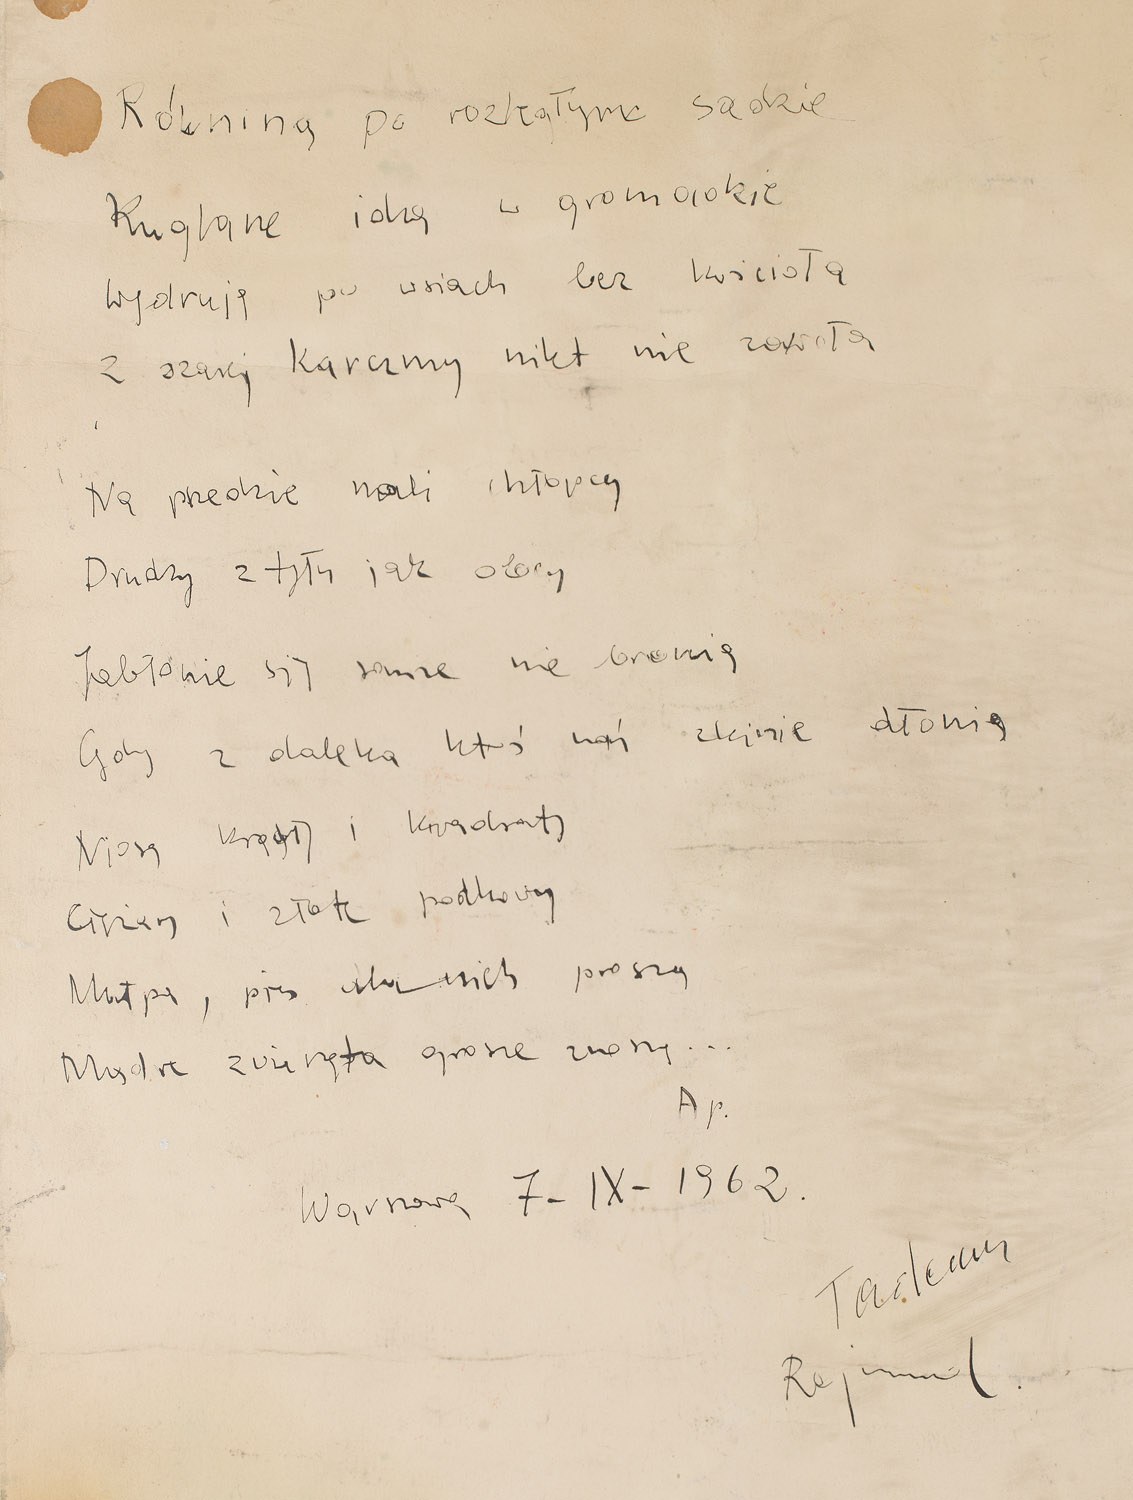 Równiną po rozległym sadzie
Kuglarze idą w gromadzie
Wędrują po wsiach bez kościoła
Z szarej karczmy nikt nie zawoła
Na przedzie mali chłopcy
Drudzy z tyłu jak obcy
Jabłonie się same nie bronią
Gdy z daleka ktoś nań skinie dłonią
Niosą krągły i kwadraty
Ciężary i złote podkowy
Małpa, pies dla nich proszą
Mądre zwierzęta grosze znoszą...
Ap.
Warszawa 7-IX-1962.
Tadeusz